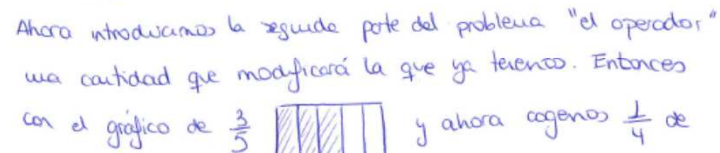 Ahora introducimos la segunda parte del problema "el operador"
una cantidad que modificará la que ya tenemos. Entonces
con el gráfico de 3/5 y ahora cogemos 1/4 de